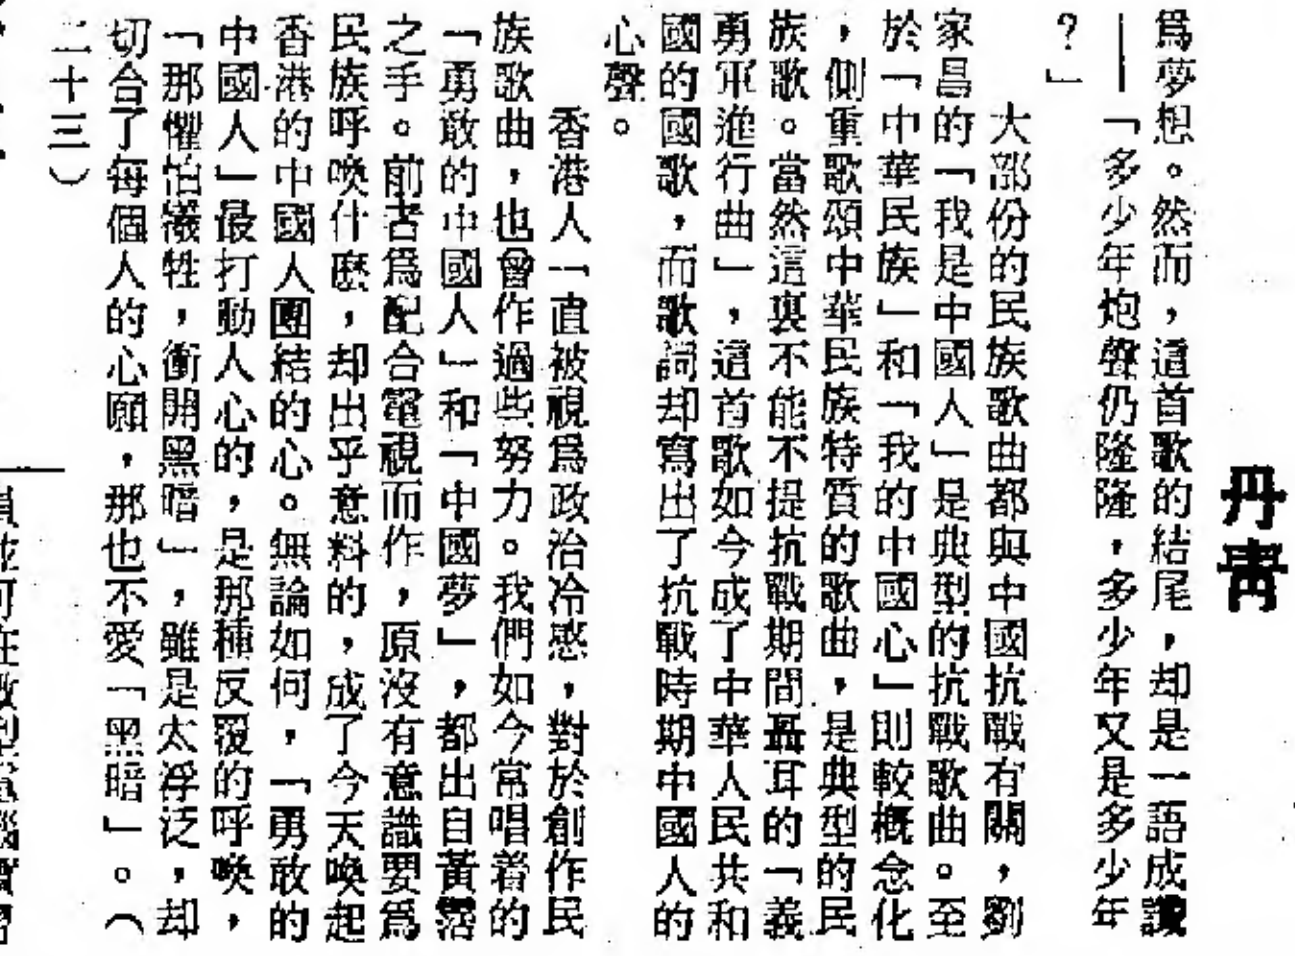 丹青
為夢想。然而，這首歌的結尾，却是一語成讖
——「多少年炮聲仍隆隆，多少年又是多少年
？」
大部份的民族歌曲都與中國抗戰有關，劉
家昌的「我是中國人」是典型的抗戰歌曲。至
於「中華民族」和「我的中國心」則較概念化
，側重歌頌中華民族特質的歌曲，是典型的民
族歌。當然這裏不能不提抗戰期間聶耳的「義
勇軍進行曲」，這首歌如今成了中華人民共和
國的國歌，而歌詞却寫出了抗戰時期中國人的
心聲。
香港人一直被視為政治冷感，對於創作民
族歌曲，也曾作過些努力。我們如今常唱着的
「勇敢的中國人」和「中國夢」，都出自黃霑
之手。前者為配合電視而作，原沒有意識要為
民族呼喚什麼，却出乎意料的，成了今天喚起
香港的中國人團結的心。無論如何，「勇敢的
中國人」最打動人心的，是那種反覆的呼喚，
「那懼怕犧牲，衝開黑暗」，雖是太浮泛，却
切合了每個人的心願，那也不愛「黑暗」。（
二十三）